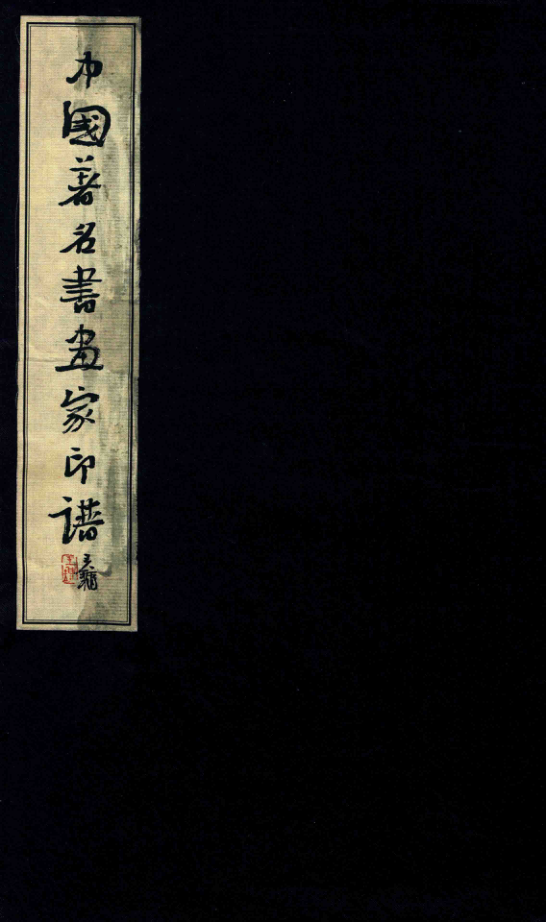 中國著名書畫家印譜